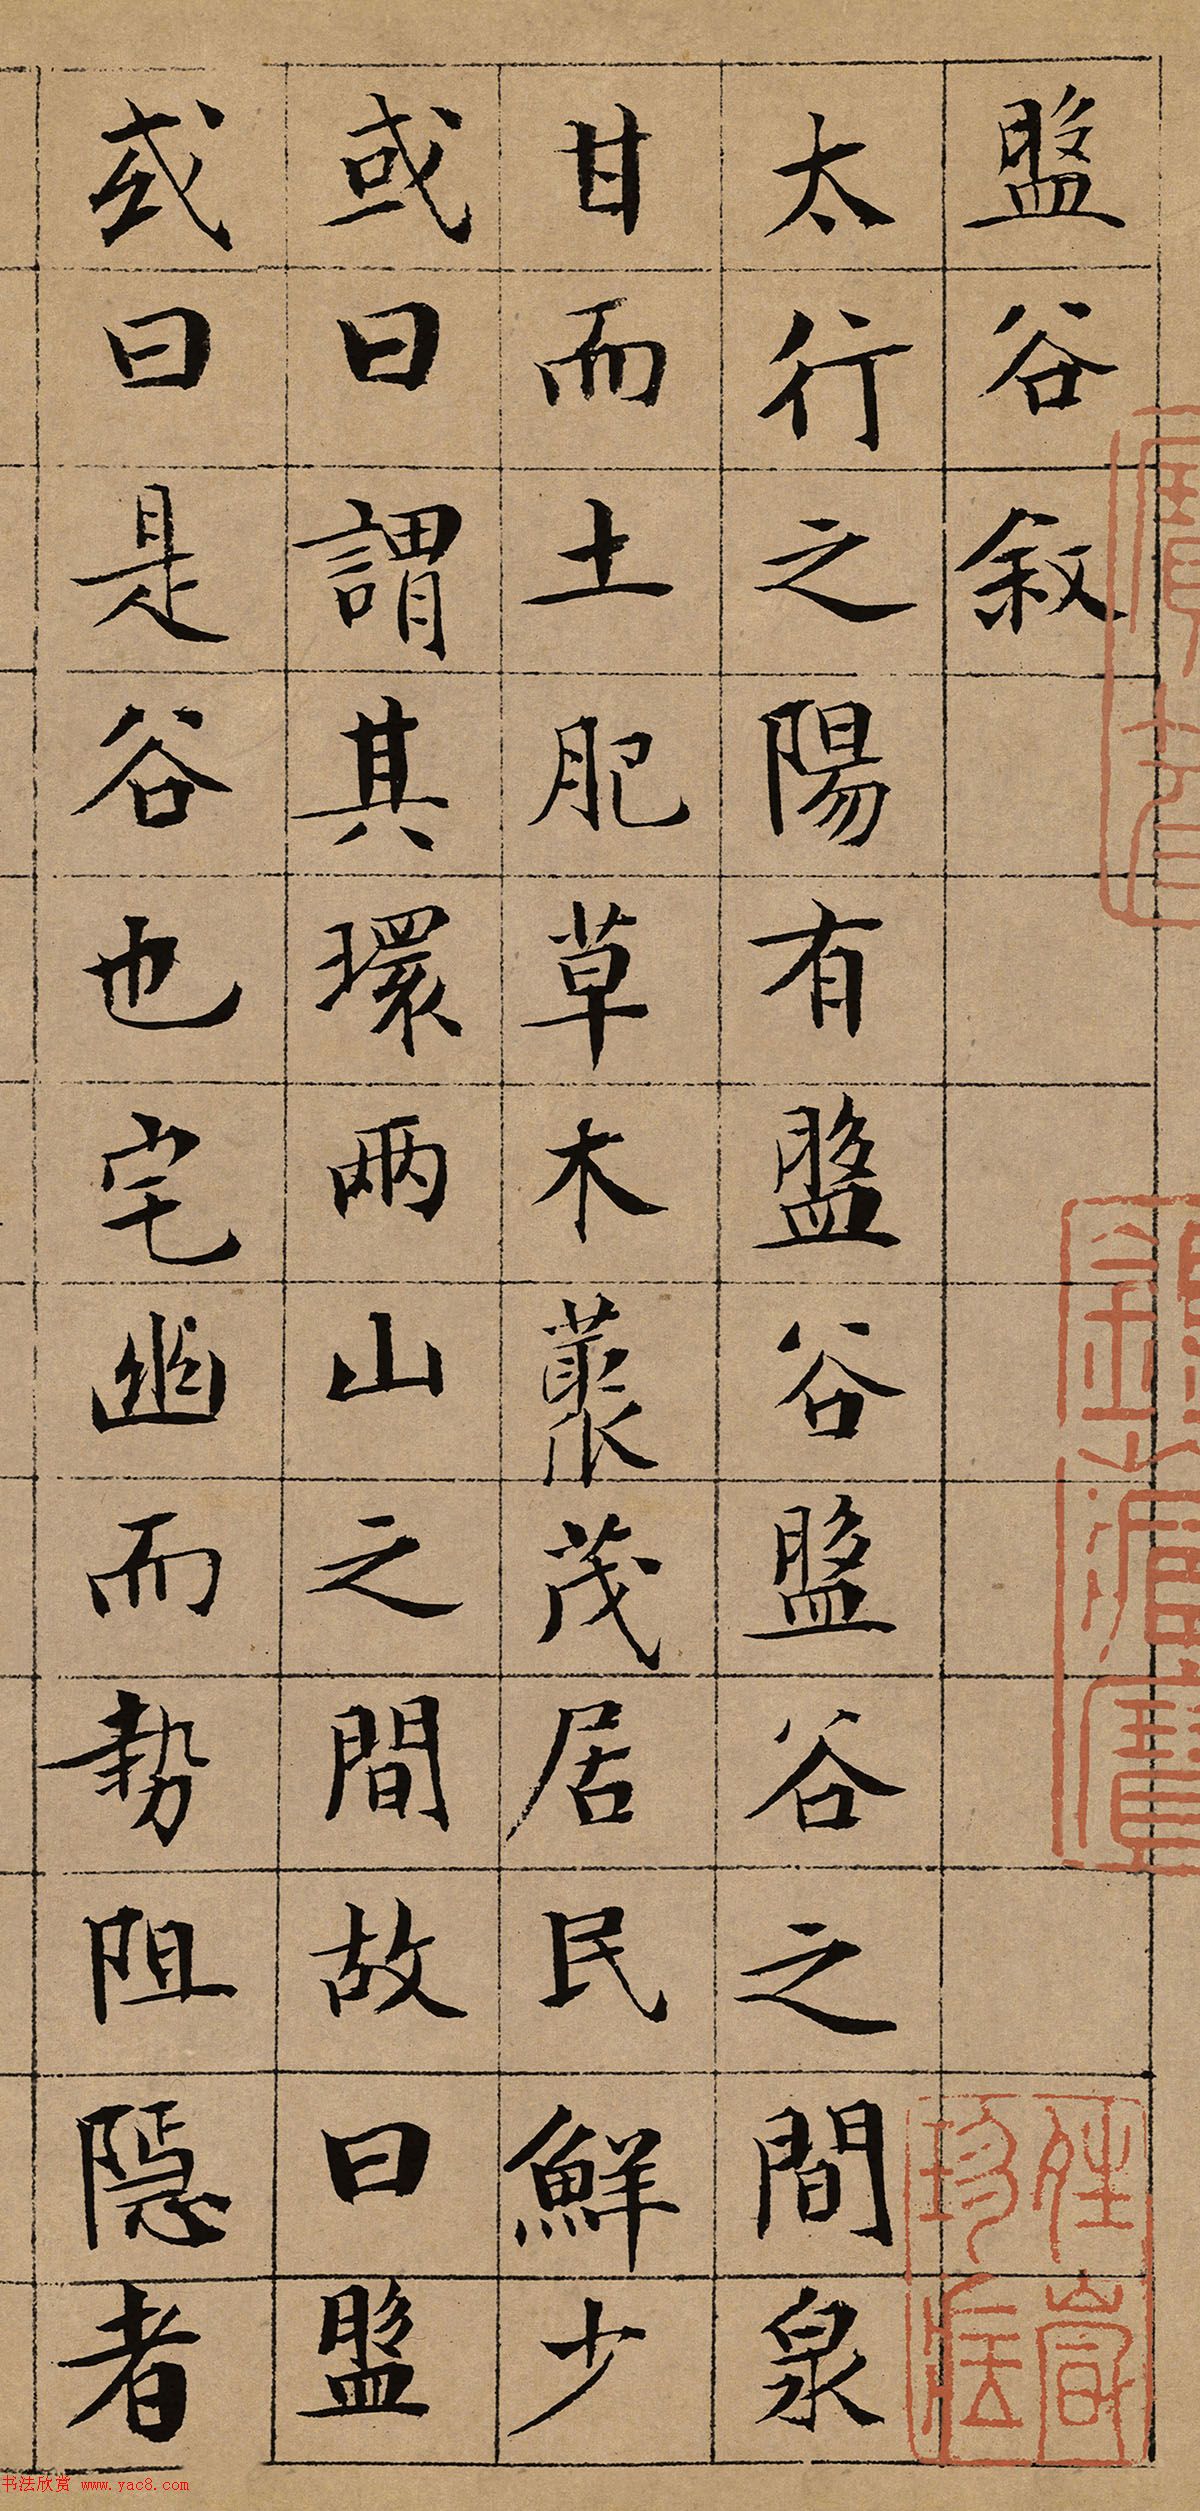 盤谷敘
太行之陽有盤谷盤谷之間泉
甘而土肥草木藂茂居民鮮少
或曰謂其環兩山之間故曰盤
或曰是谷也宅幽而勢阻隱者
书法欣赏 www.yac8.com